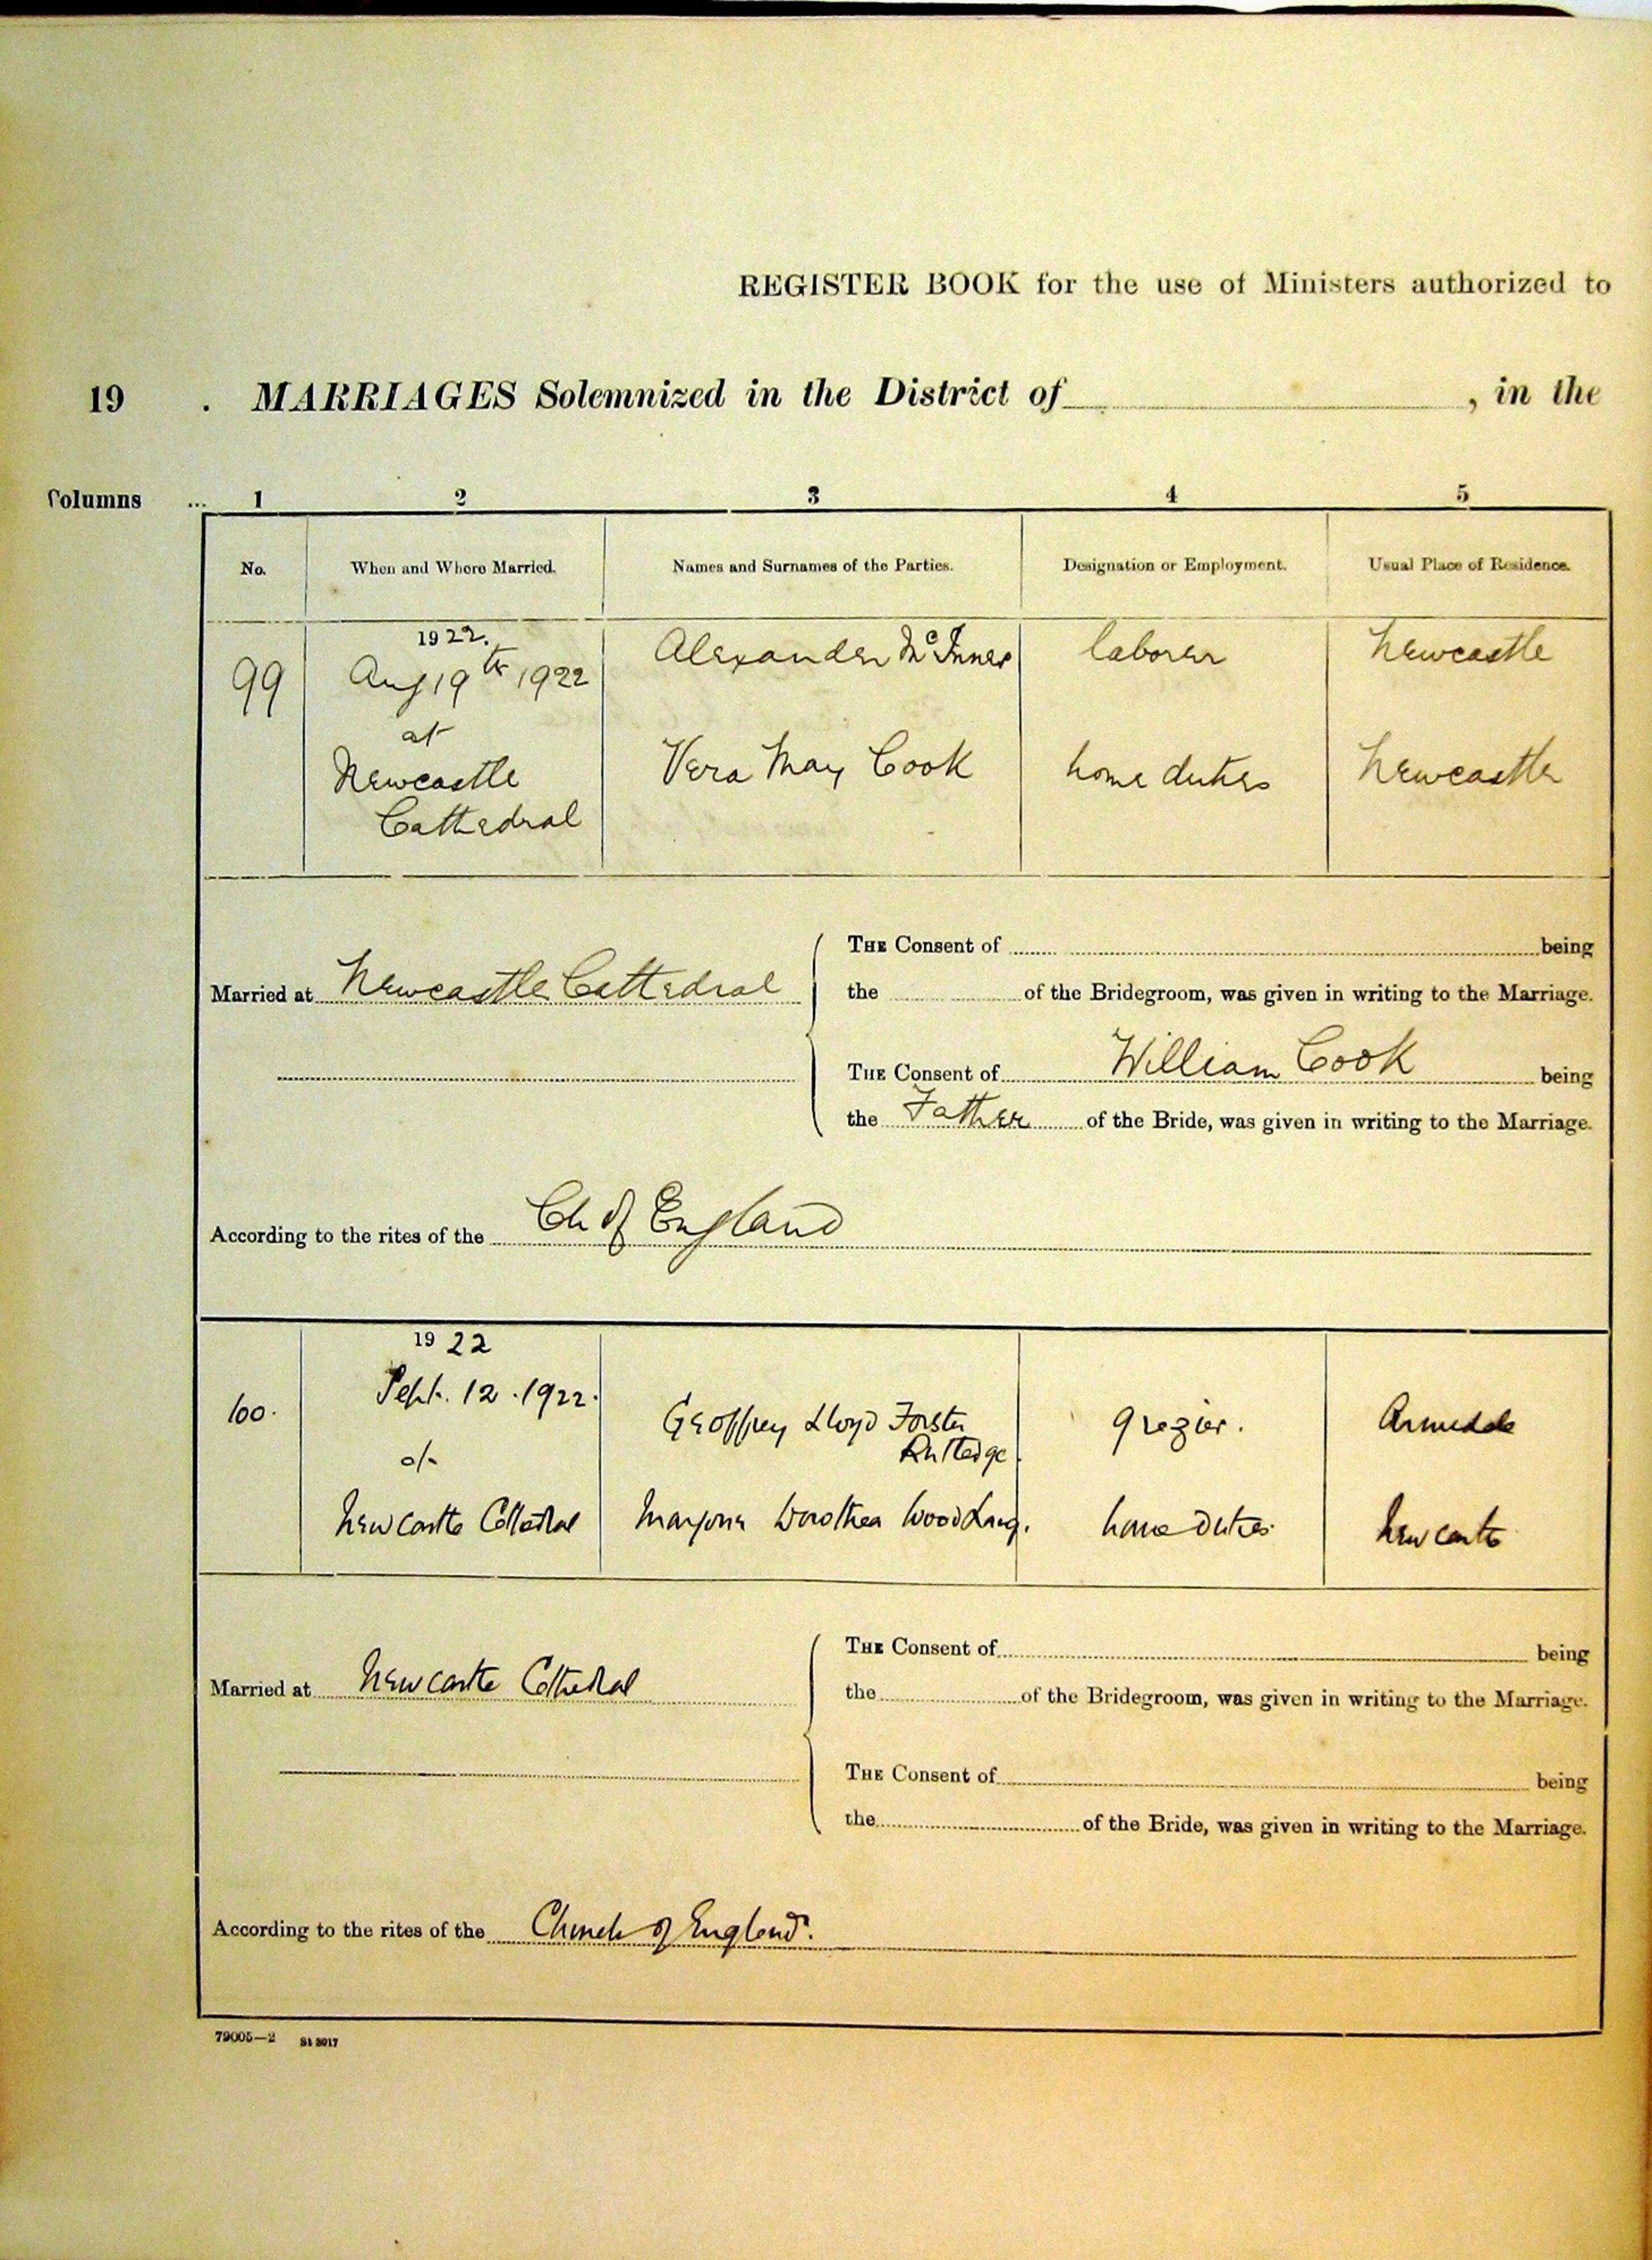 REGISTER BOOK for the use of Ministers authorized to
19 . MARRIAGES Solemnized in the District of , in the
Columns ... 1 2 3 4 5
No. When and Where Married. Names and Surnames of the Parties. Designation or Employment. Usual Place of Residence.
1922.
99 Aug 19th 1922 Alexander McInnes laborer Newcastle
at
Newcastle Vera May Cook home duties Newcastle
Cathedral
THE Consent of being
Married at Newcastle Cathedral the of the Bridegroom, was given in writing to the Marriage.
THE Consent of William Cook being
the Father of the Bride, was given in writing to the Marriage.
According to the rites of the Ch of England
1922
100. Sept. 12. 1922. Geoffrey Lloyd Forster grazier. Armidale
at Rutledge
Newcastle Cathedral Marjorie Dorothea Wood home duties Newcastle
THE Consent of being
Married at Newcastle Cathedral the of the Bridegroom, was given in writing to the Marriage.
THE Consent of being
the of the Bride, was given in writing to the Marriage.
According to the rites of the Church of England.
79005—2 St 3917